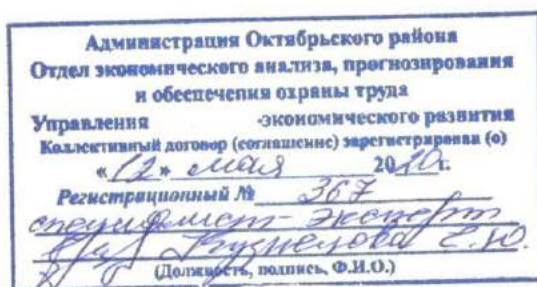 Администрация Октябрьского района
Отдел экономического анализа, прогнозирования
и обеспечения охраны труда
Управления -экономического развития
Коллективный договор (соглашение) зарегистрирован (о)
«12» мая 2020г.
Регистрационный № 367
специалист-эксперт
Кузнецова Е.Ю.
(Должность, подпись, Ф.И.О.)